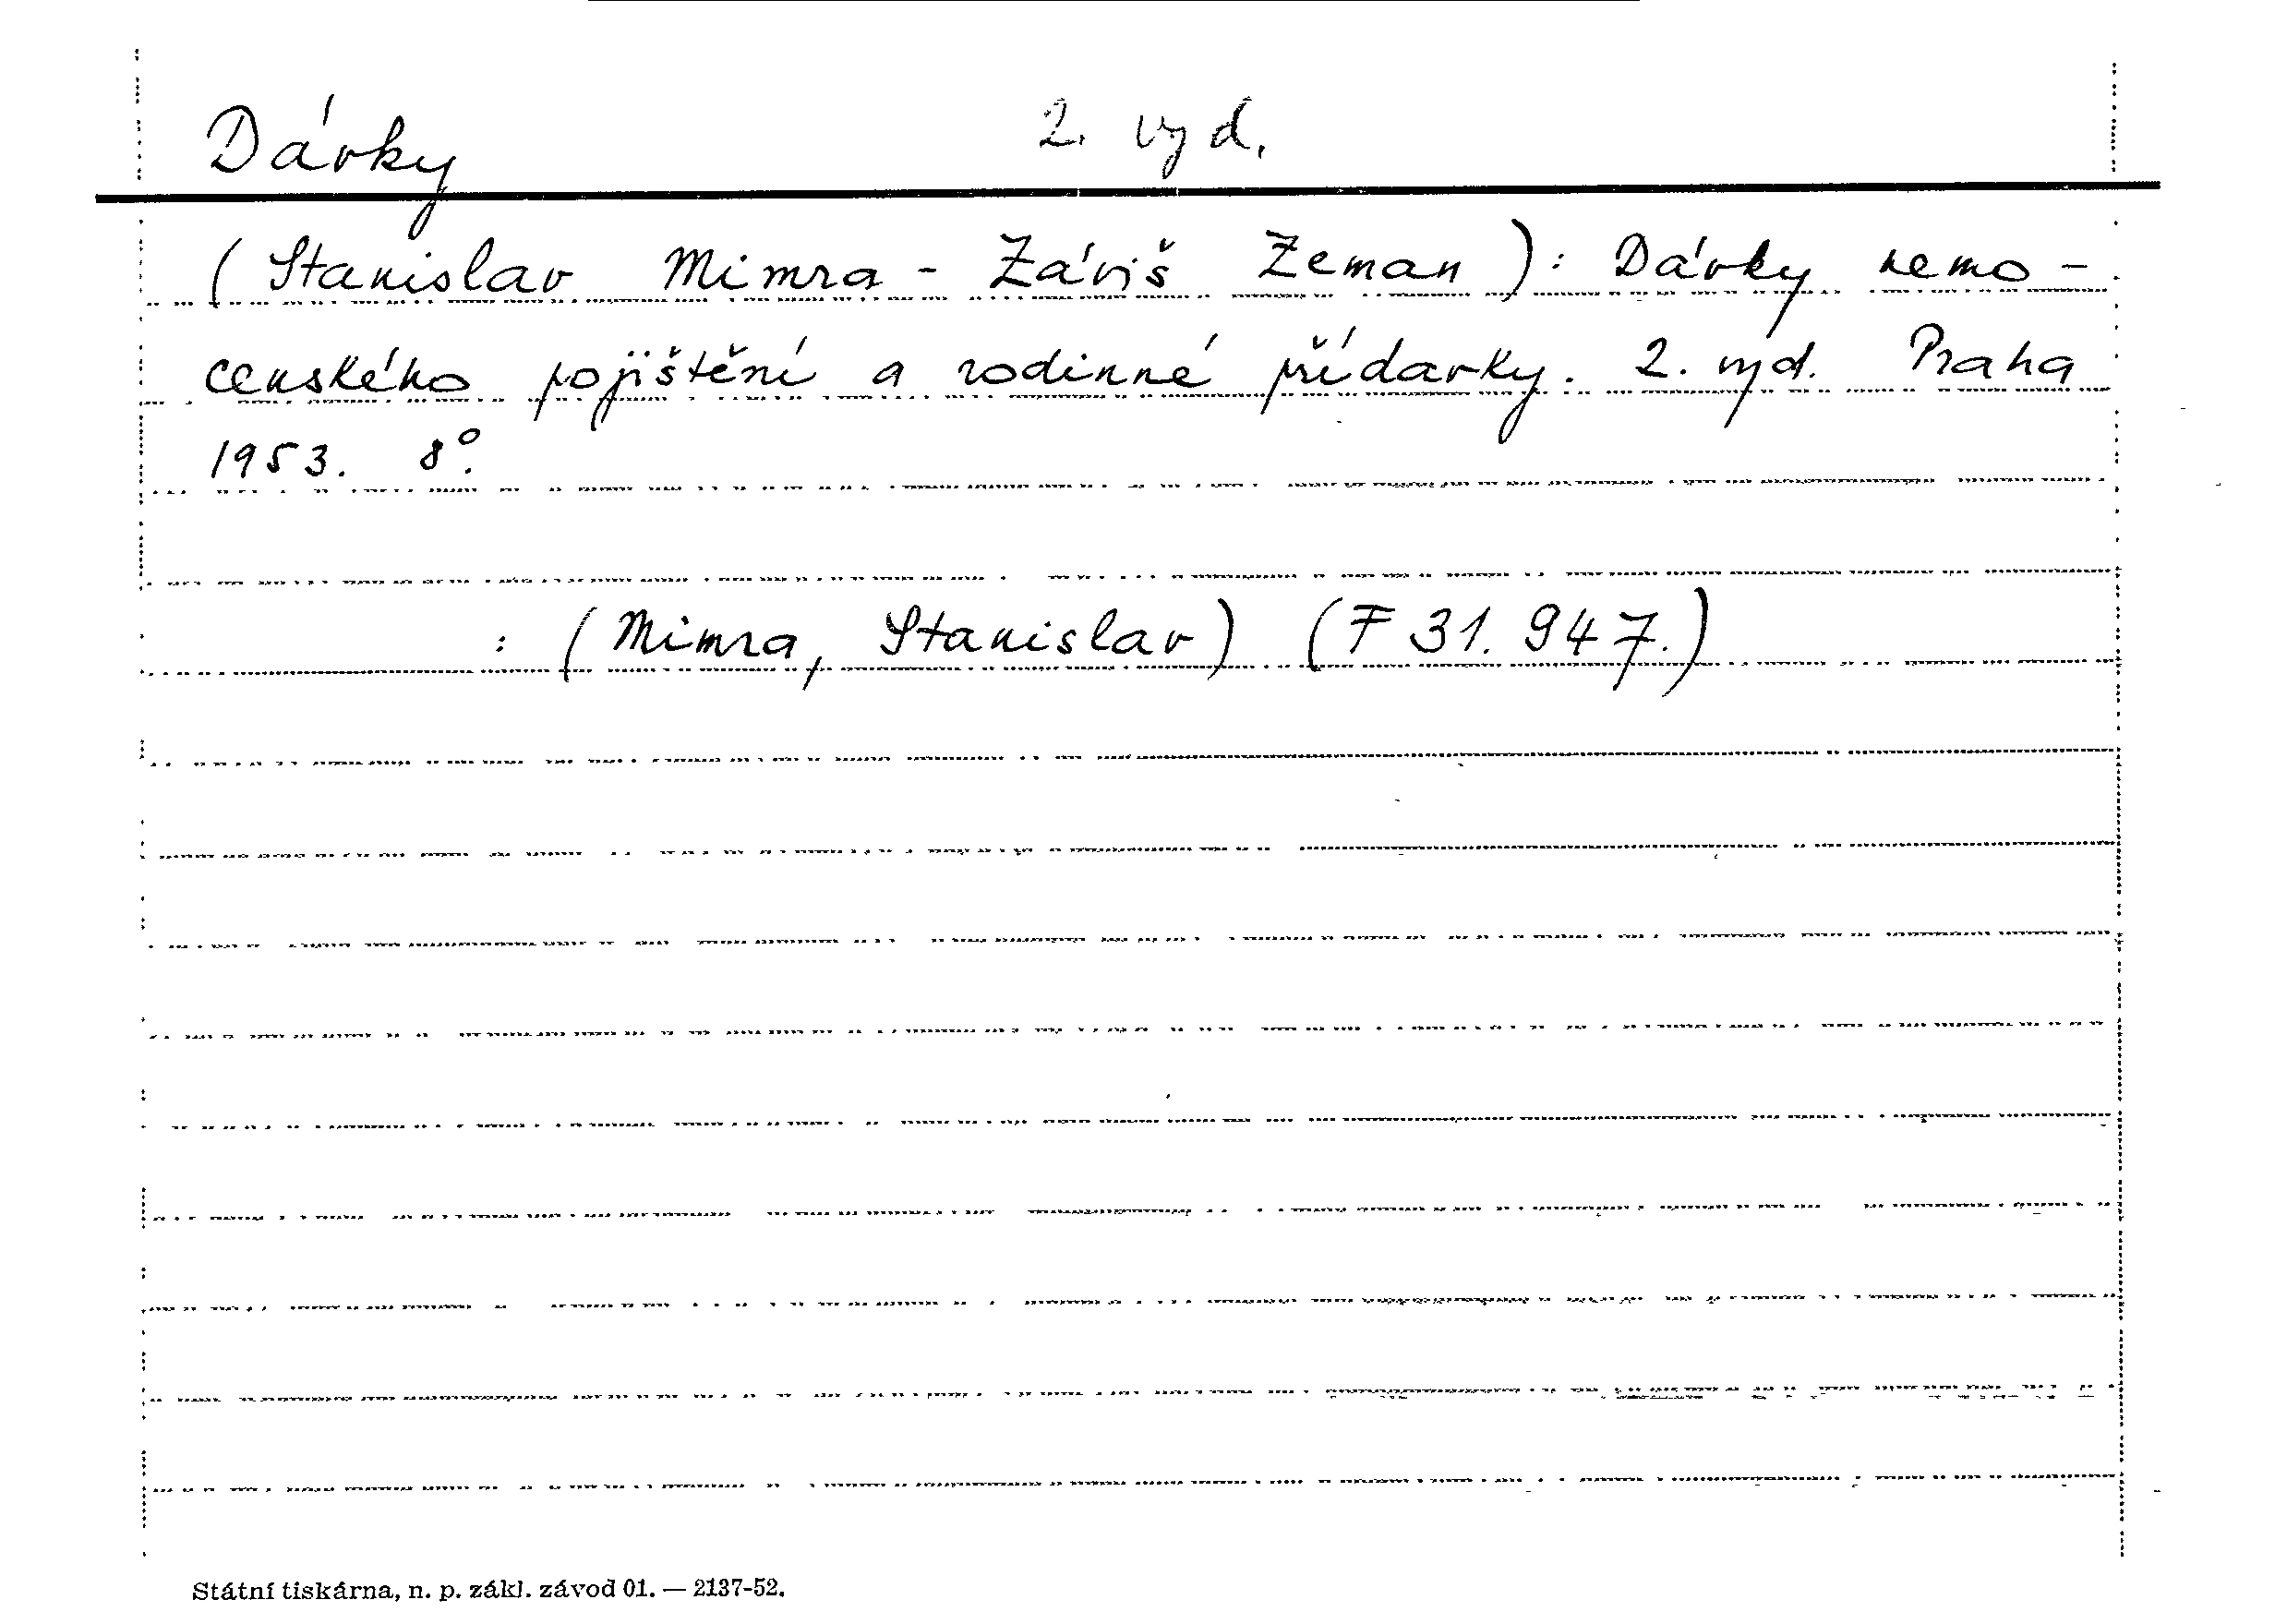 Dávky 2. vyd.
(Stanislav Mimra - Záviš Zeman): Dávky nemo-
cenského pojištění a rodinné přídavky. 2. vyd. Praha
1953. 8°.
: (Mimra, Stanislav) (F 31.947.)
Státní tiskárna, n. p. zákl. závod 01. — 2137-52.